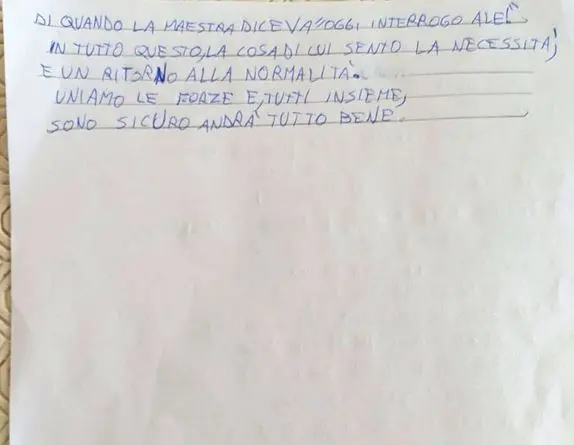 DI QUANDO LA MAESTRA DICEVA "OGGI INTERROGO ALE"
IN TUTTO QUESTO, LA COSA DI CUI SENTO LA NECESSITÀ,
E UN RITORNO ALLA NORMALITÀ.
UNIAMO LE FORZE E, TUTTI INSIEME,
SONO SICURO ANDRÀ TUTTO BENE.